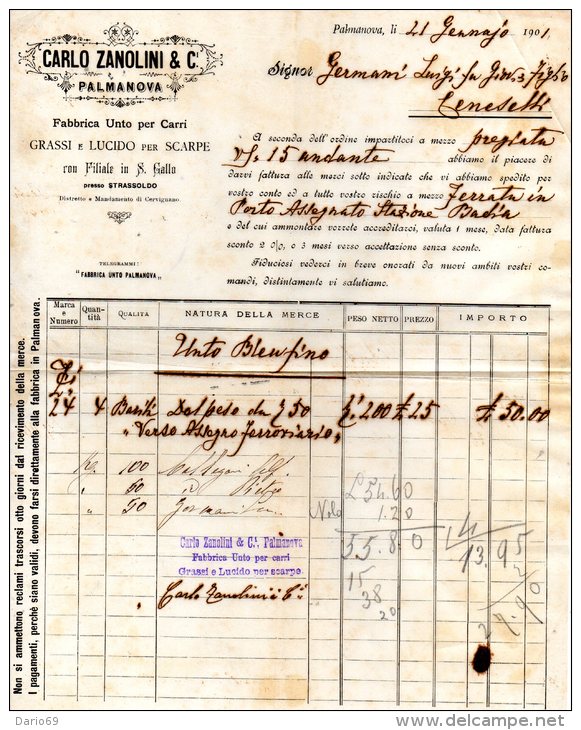 CARLO ZANOLINI & C.
PALMANOVA
Fabbrica Unto per Carri
GRASSI E LUCIDO PER SCARPE
con Filiale in S. Gallo
presso STRASSOLDO
Distretto e Mandamento di Cervignano.
TELEGRAMMI:
"FABBRICA UNTO PALMANOVA"
Palmanova, li 21 Gennajo 1901.
Signor Germani Luigi fu
Ceneselli
A seconda dell'ordine impartitoci a mezzo pregiata
v/. 15 andante abbiamo il piacere di
darvi fattura alle merci sotto indicate che vi abbiamo spedito per
vostro conto ed a tutto vostro rischio a mezzo Ferrata in
Porto Assegnato Stazione Badia
e del cui ammontare vorrete accreditarci, valuta 1 mese, data fattura
sconto 2 0/0, o 3 mesi verso accettazione senza sconto.
Fiduciosi vederci in breve onorati da nuovi ambiti vostri co-
mandi, distintamente vi salutiamo.
Marca e Numero Quantità QUALITÀ NATURA DELLA MERCE PESO NETTO PREZZO IMPORTO
Unto Bleufino
24 4 Barili Del peso da 50 200 £ 25 £ 50.00
"Verso Assegno Ferroviario"
100
50
50
£ 54.60
Nolo 1.20
55.80
15
38
20
14
13.95
2
27.90
Carlo Zanolini & C.i, Palmanova
Fabbrica Unto per carri
Grassi e Lucido per scarpe.
Carlo Zanolini & C.i
Non si ammettono reclami trascorsi otto giorni dal ricevimento della merce.
I pagamenti, perchè siano validi, devono farsi direttamente alla fabbrica in Palmanova.
Dario69
delcampe.net